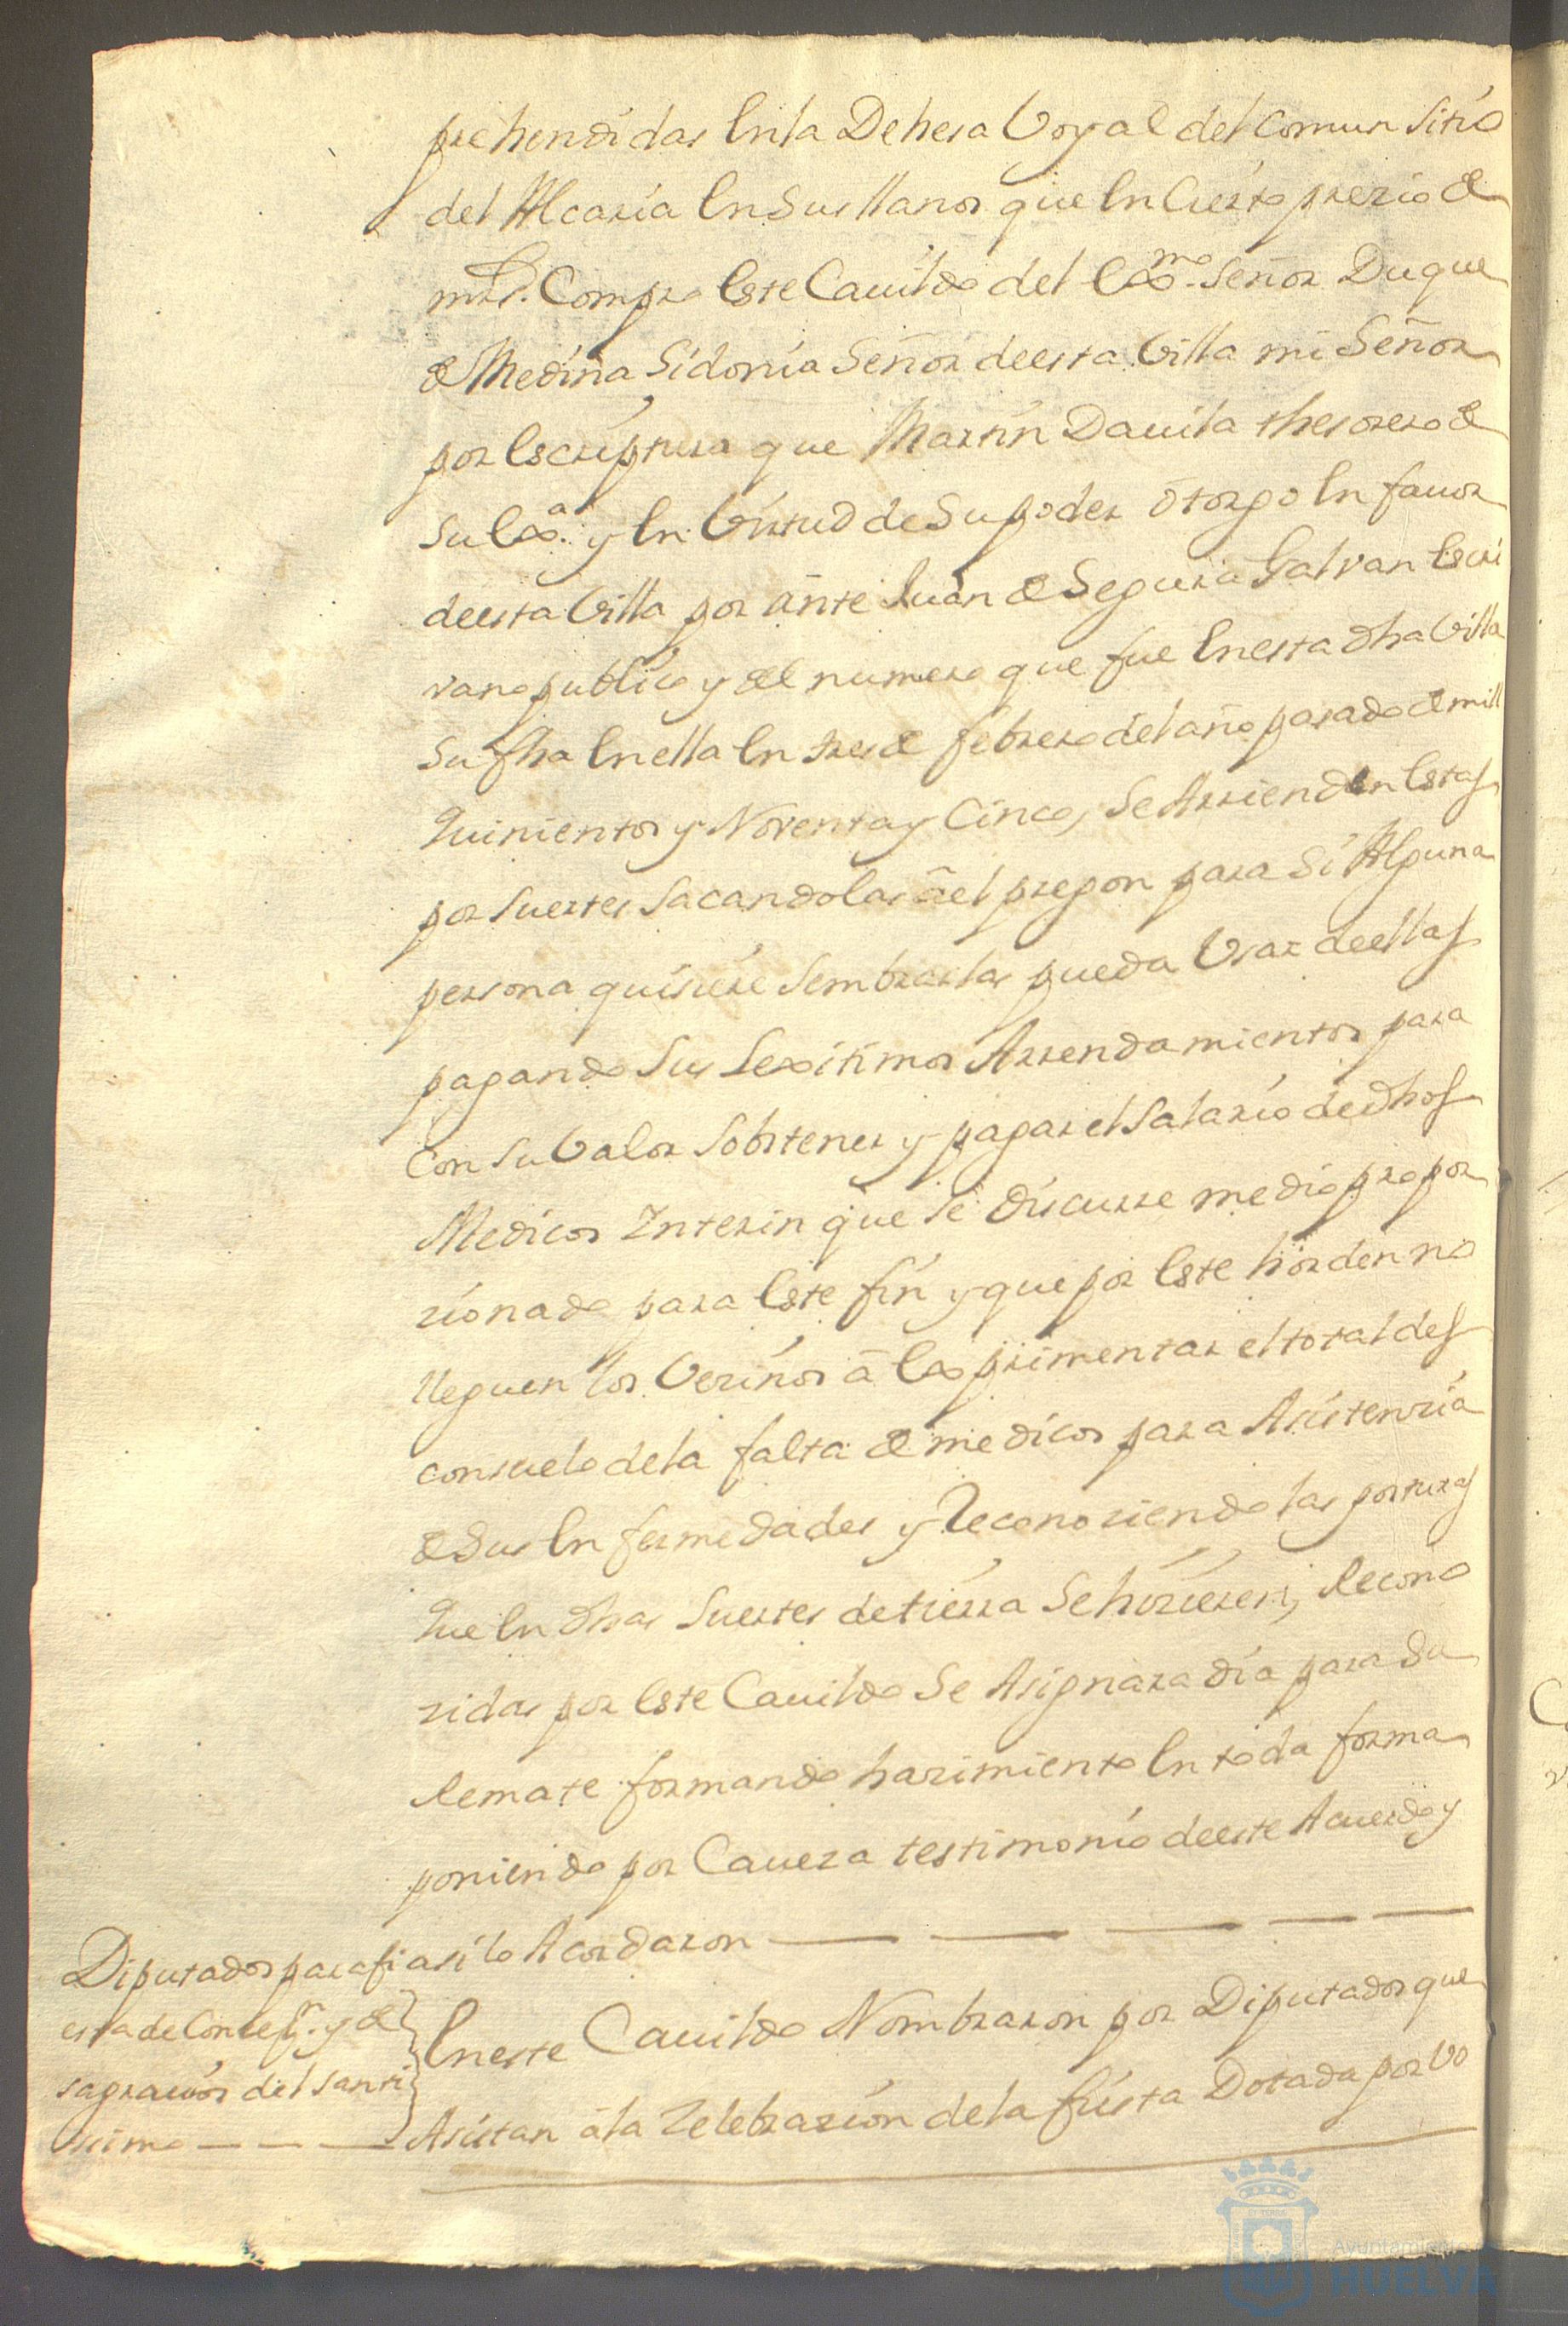 prehendidas en la Dehesa Boyal del Comun sitio
del Alcaria en sus llanos que en Cierto prezio de
mrs. Compro este Cauildo del exmo. Señor Duque
de Medina Sidonia Señor de esta Villa mi Señor
por escriptura que Martin Dauila thesorero de
su exa. y en Virtud de su poder otorgo en fauor
de esta Villa por ante Juan de Segura Galvan escri
vano publico y del numero que fue en esta dha Villa
su fha en ella en tres de febrero del año pasado de mill
quinientos y Noventa y Cinco, se Arrienden estas
por suertes sacandolas âel pregon para si Alguna
persona quisiere sembrarlas pueda Vsar de ellas
pagando sus Lexitimos Arrendamientos para
con su Valor sobstener y pagar el salario de dhos
Medicos Interin que se discurre medio propor
zionado para este fin y que por este horden no
lleguen los Vezinos â experimentar el total des
consuelo de la falta de medicos para Asistenzia
de sus enfermedades y Reconoziendo las posturas
que en dhas suertes de tierra se hizieren, Recono
zidas por este Cauildo se Asignara dia para su
Remate formando hazimiento en toda forma
poniendo por Caueza testimonio de este Acuerdo y
asi lo Acordaron
Diputados para fi
esta de Concepn. y de
sagrauios del santi
ssimo
En este Cauildo Nombraron por Diputados que
Asistan â la Zelebrazion de la fiesta Dotada por Vo
Ayuntamiento
HUELVA